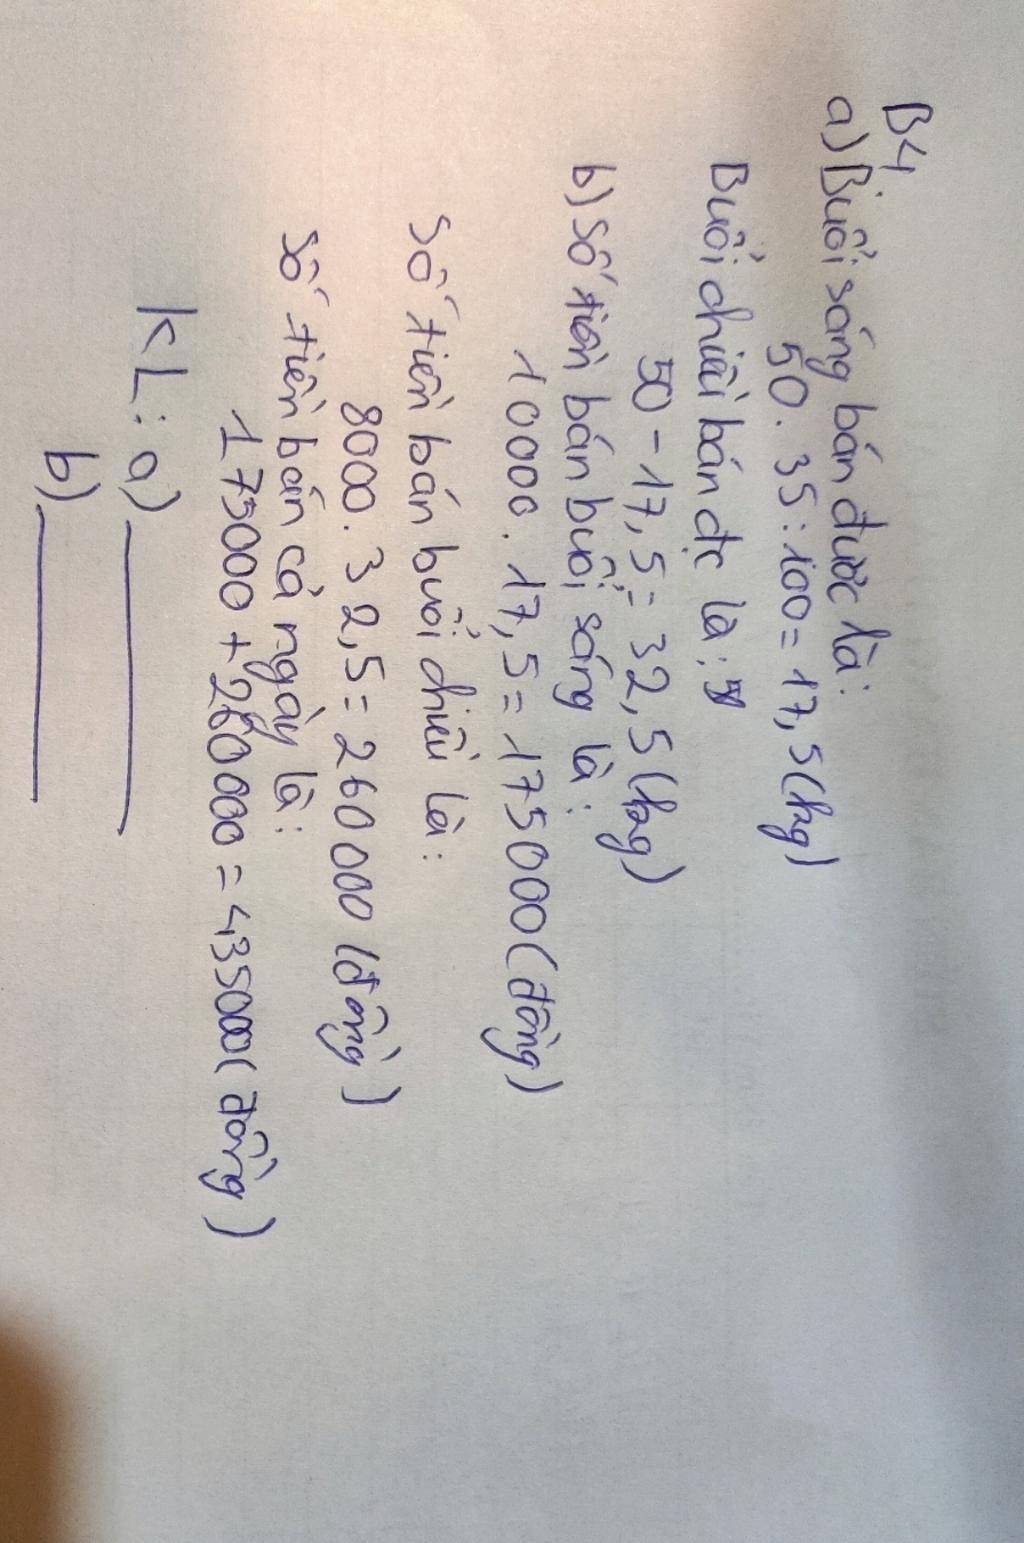 B4
a) Buổi sáng bán được là:
50 . 35 : 100 = 17,5 (kg)
Buổi chiều bán đc là:
50 - 17,5 = 32,5 (kg)
b) Số tiền bán buổi sáng là:
10000 . 17,5 = 175000 (đồng)
Số tiền bán buổi chiều là:
8000 . 32,5 = 260 000 (đồng)
Số tiền bán cả ngày là:
175000 + 260000 = 435000 (đồng)
KL: a)
b)